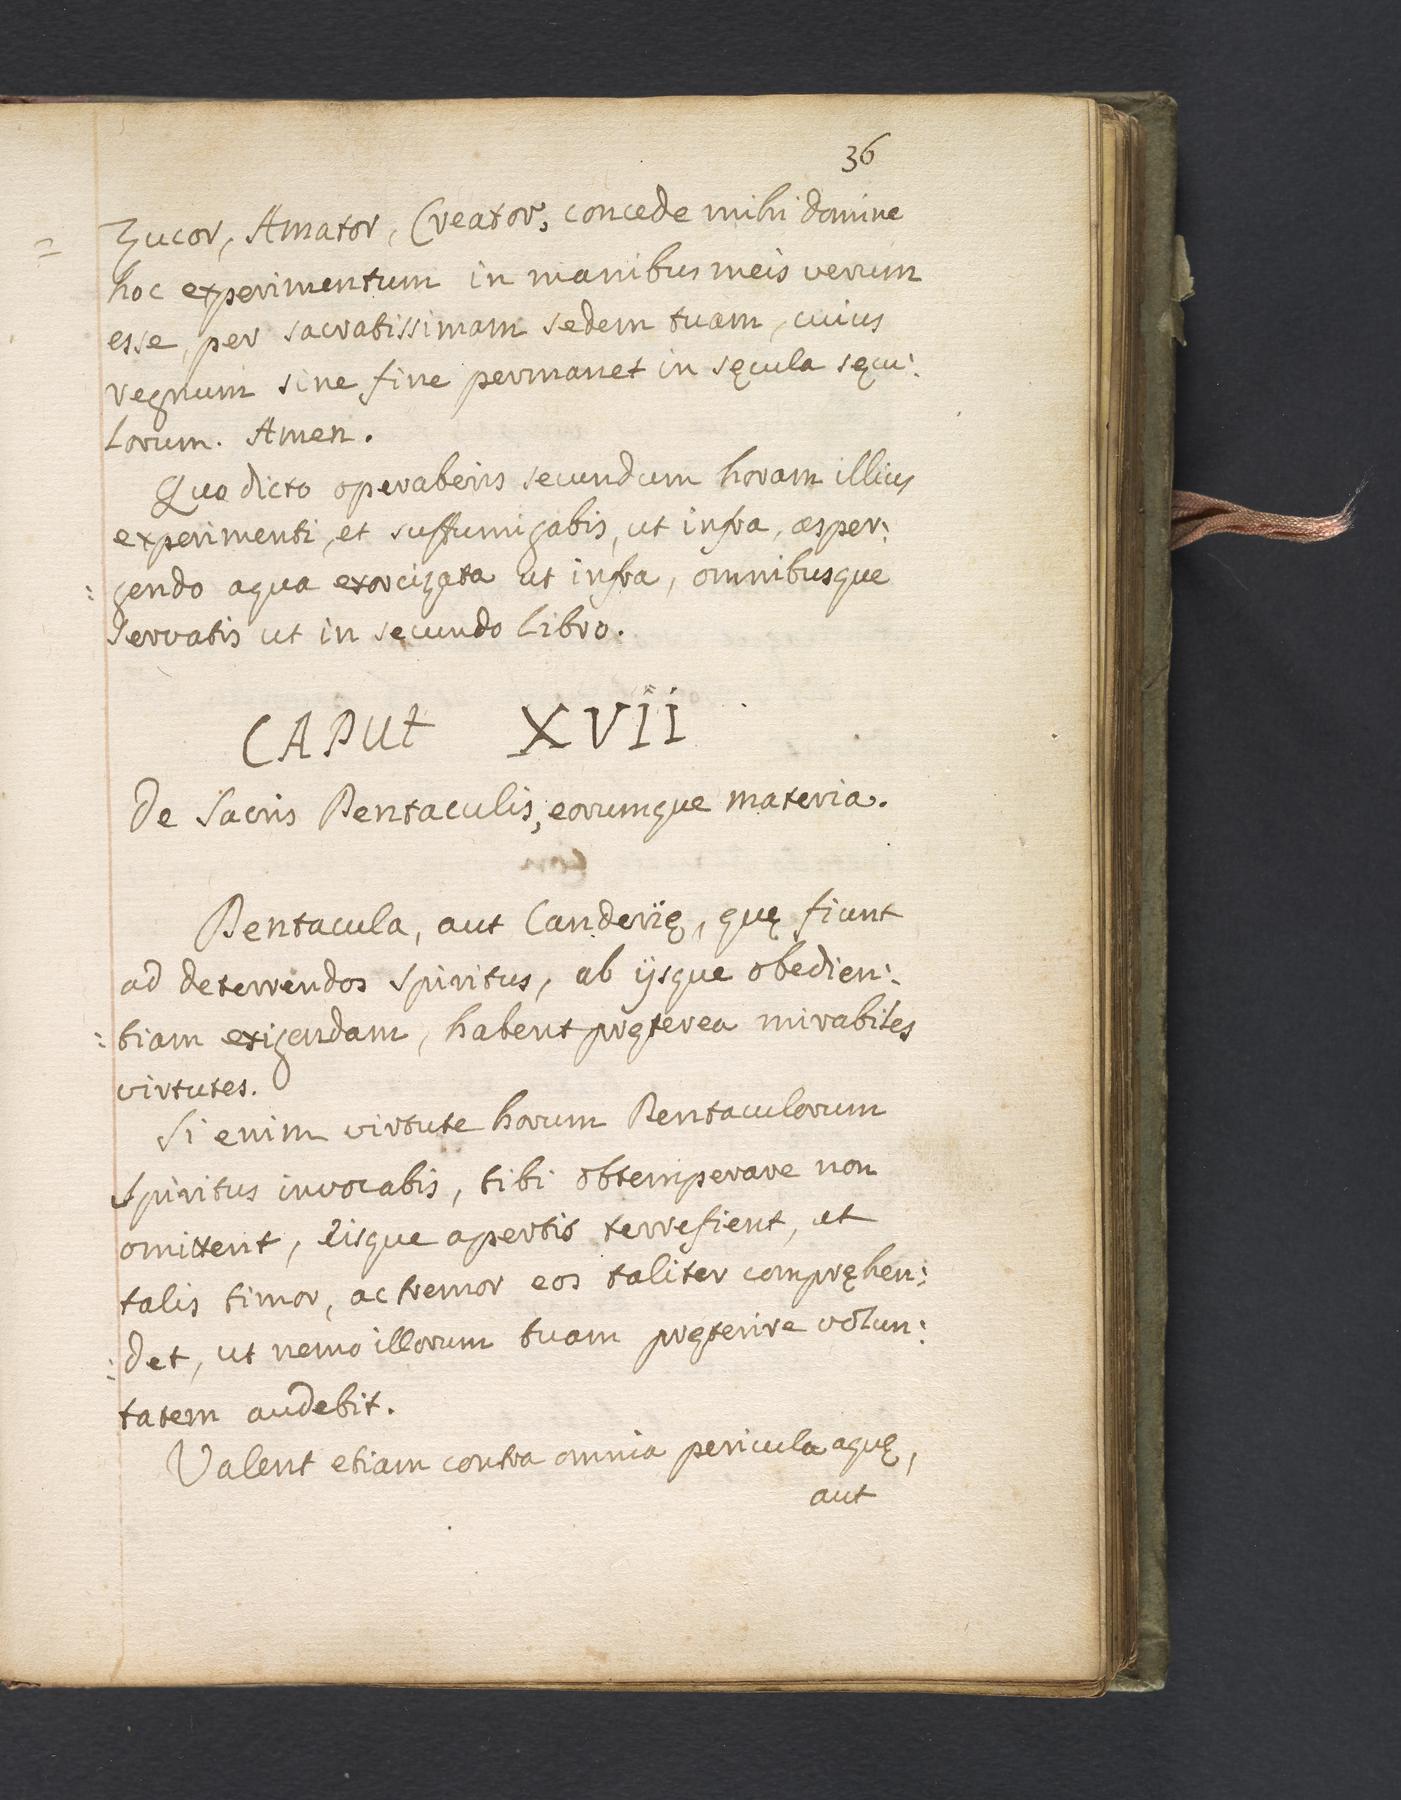 36
= Zucor, Amator, Creator, concede mihi domine
hoc experimentum in manibus meis verum
esse, per sacratissimam sedem tuam, cuius
regnum sine fine permanet in sęcula sęcu:
lorum. Amen.
Quo dicto operaberis secundum horam illius
experimenti, et suffumigabis, ut infra, asper:
: gendo aqua exorcizata ut infra, omnibusque
servatis ut in secundo libro.
CAPUt XVII
De Sacris Pentaculis, eorumque materia.
Pentacula, aut Canderiję, quę fiunt
ad deterrendos Spiritus, ab ijsque obedien:
: tiam exigendam, habent pręterea mirabiles
virtutes.
Si enim virtute horum Pentaculorum
Spiritus invocabis, tibi obtemperare non
omittent, eisque apertis terrefient, et
talis timor, ac tremor eos taliter compręhen:
: det, ut nemo illorum tuam pręterire volun:
tatem audebit.
Valent etiam contra omnia pericula aquę,
aut